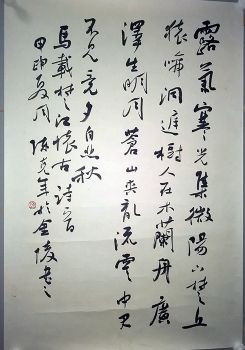 露氣寒光集微陽下楚丘
猿啼洞庭樹人在木蘭舟廣
澤生明月蒼山夾亂流雲中君
不見竟夕自悲秋
馬載楚江懷古詩一首
甲申夏月 於金陵